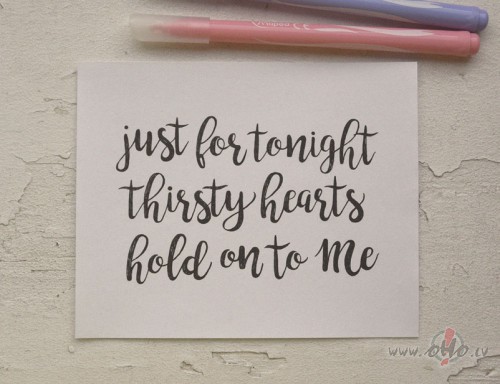 just for tonight
thirsty hearts
hold on to Me
www.otto.lv